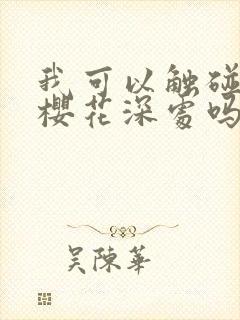 我可以触碰
樱花深处吗
吴陈華